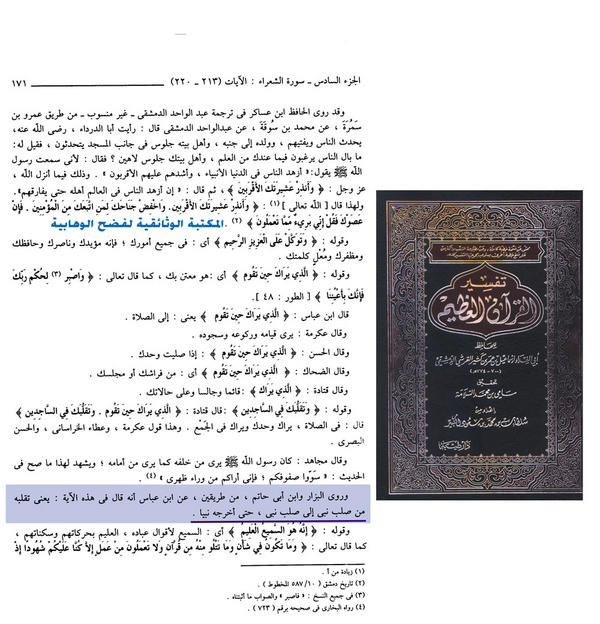 الجزء السادس ـ سورة الشعراء : الآيات (٢١٣ ـ ٢٢٠) ١٧١
وقد روى الحافظ ابن عساكر فى ترجمة عبد الواحد الدمشقى ـ غير منسوب ـ من طريق عمرو بن
سَمُرَةَ ، عن محمد بن سُوقَةَ ، عن عبدالواحد الدمشقى قال : رأيت أبا الدرداء ، رضى اللّه عنه،
يحدث الناس ويفتيهم ، وولده إلى جنبه ، وأهل بيته جلوس فى جانب المسجد يتحدثون ، فقيل له:
ما بال الناس يرغبون فيما عندك من العلم ، وأهل بيتك جلوس لاهين ؟ فقال : لأنى سمعت رسول
اللّه ﷺ يقول: «أزهد الناس فى الدنيا الأنبياء ، وأشدهم عليهم الأقربون » . وذلك فيما أنزل اللّه ،
عز وجل : ﴿ وَأَنذِرْ عَشِيرَتَكَ الأَقْرَبِينَ ﴾ ، ثم قال : « إن أزهد الناس فى العالم أهله حتى يفارقهم» .
ولهذا قال [ اللّه تعالى ] (١) : ﴿ وَأَنذِرْ عَشِيرَتَكَ الأَقْرَبِينَ. وَاخْفِضْ جَنَاحَكَ لِمَنِ اتَّبَعَكَ مِنَ الْمُؤْمِنِينَ . فَإِنْ
عَصَوْكَ فَقُلْ إِنِّي بَرِيءٌ مِّمَّا تَعْمَلُونَ ﴾ (٢) . المكتبة الوثائقية لفضح الوهابية
وقوله : ﴿ وَتَوَكَّلْ عَلَى الْعَزِيزِ الرَّحِيمِ ﴾ أى : فى جميع أمورك ؛ فإنه مؤيدك وناصرك وحافظك
ومظفرك ومُعْلٍ كلمتك .
وقوله : ﴿ الَّذِي يَرَاكَ حِينَ تَقُومُ ﴾ أى : هو معتن بك ، كما قال تعالى : ﴿ وَاصْبِرْ (٣) لِحُكْمِ رَبِّكَ
فَإِنَّكَ بِأَعْيُنِنَا ﴾ [ الطور : ٤٨ ] .
قال ابن عباس : ﴿ الَّذِي يَرَاكَ حِينَ تَقُومُ ﴾ يعنى : إلى الصلاة .
وقال عكرمة : يرى قيامه وركوعه وسجوده .
وقال الحسن : ﴿ الَّذِي يَرَاكَ حِينَ تَقُومُ ﴾ : إذا صليت وحدك .
وقال الضحاك : ﴿ الَّذِي يَرَاكَ حِينَ تَقُومُ ﴾ أى : من فراشك أو مجلسك .
وقال قتادة : ﴿ الَّذِي يَرَاكَ ﴾ : قائما وجالسا وعلى حالاتك .
وقوله : ﴿ وَتَقَلُّبَكَ فِي السَّاجِدِينَ ﴾ : قال قتادة : ﴿ الَّذِي يَرَاكَ حِينَ تَقُومُ . وَتَقَلُّبَكَ فِي السَّاجِدِينَ ﴾
قال : فى الصلاة ، يراك وحدك ويراك فى الجَمْع . وهذا قول عكرمة ، وعطاء الخراسانى ، والحسن
البصرى .
وقال مجاهد : كان رسول اللّه ﷺ يرى من خلفه كما يرى من أمامه ؛ ويشهد لهذا ما صح فى
الحديث : «سَوّوا صفوفكم ؛ فإنى أراكم من وراء ظهرى » (٤) .
وروى البزار وابن أبى حاتم ، من طريقين ، عن ابن عباس أنه قال فى هذه الآية : يعنى تقلبه
من صلب نبى إلى صلب نبى ، حتى أخرجه نبيا .
وقوله : ﴿ إِنَّهُ هُوَ السَّمِيعُ الْعَلِيمُ ﴾ أى : السميع لأقوال عباده ، العليم بحركاتهم وسكناتهم ،
كما قال تعالى : ﴿ وَمَا تَكُونُ فِي شَأْنٍ وَمَا تَتْلُو مِنْهُ مِن قُرْآنٍ وَلا تَعْمَلُونَ مِنْ عَمَلٍ إِلاَّ كُنَّا عَلَيْكُمْ شُهُودًا إِذْ
(١) زيادة من أ .
(٢) تاريخ دمشق (١٠/ ٥٨٧ المخطوط ) .
(٣) فى جميع النسخ : « فاصبر » والصواب ما أثبتناه .
(٤) رواه البخارى فى صحيحه برقم ( ٧٢٣ ) .
تفسير
القرآن العظيم
للحافظ
أبي الفداء إسماعيل بن عمر بن كثير القرشي الدمشقي
تحقيق
سامي بن محمد السلامة
دار طيبة